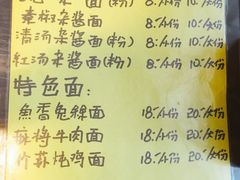 面(粉) 8.-/小份 10.-/大份
素椒杂酱面 8.-/小份 10.-/大份
清汤杂酱面(粉) 8.-/小份 10.-/大份
红汤杂酱面(粉) 8.-/小份 10.-/大份
特色面:
鱼香兔绿面 18.-/小份 20.-/大份
麻将牛肉面 18.-/小份 20.-/大份
竹荪炖鸡面 18.-/小份 20.-/大份